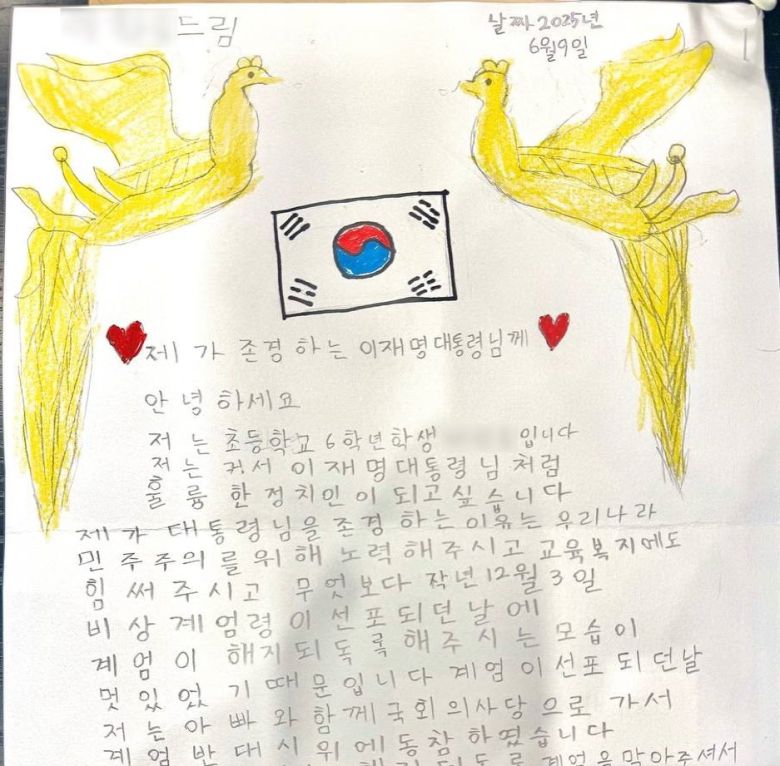 드림
날짜 2025년
6월9일
제가 존경하는 이재명대통령님께
안녕하세요
저는 초등학교 6학년학생 입니다
저는 커서 이재명대통령님처럼
훌륭한 정치인이 되고싶습니다
제가 대통령님을 존경하는 이유는 우리나라
민주주의를위해 노력해주시고 교육복지에도
힘써주시고 무엇보다 작년12월3일
비상계엄령이 선포되던날에
계엄이 해지되도록 해주시는 모습이
멋있었기때문입니다 계엄이선포되던날
저는아빠와함께국회의사당으로 가서
계엄반대시위에동참하였습니다
되도록계엄을막아주셔서